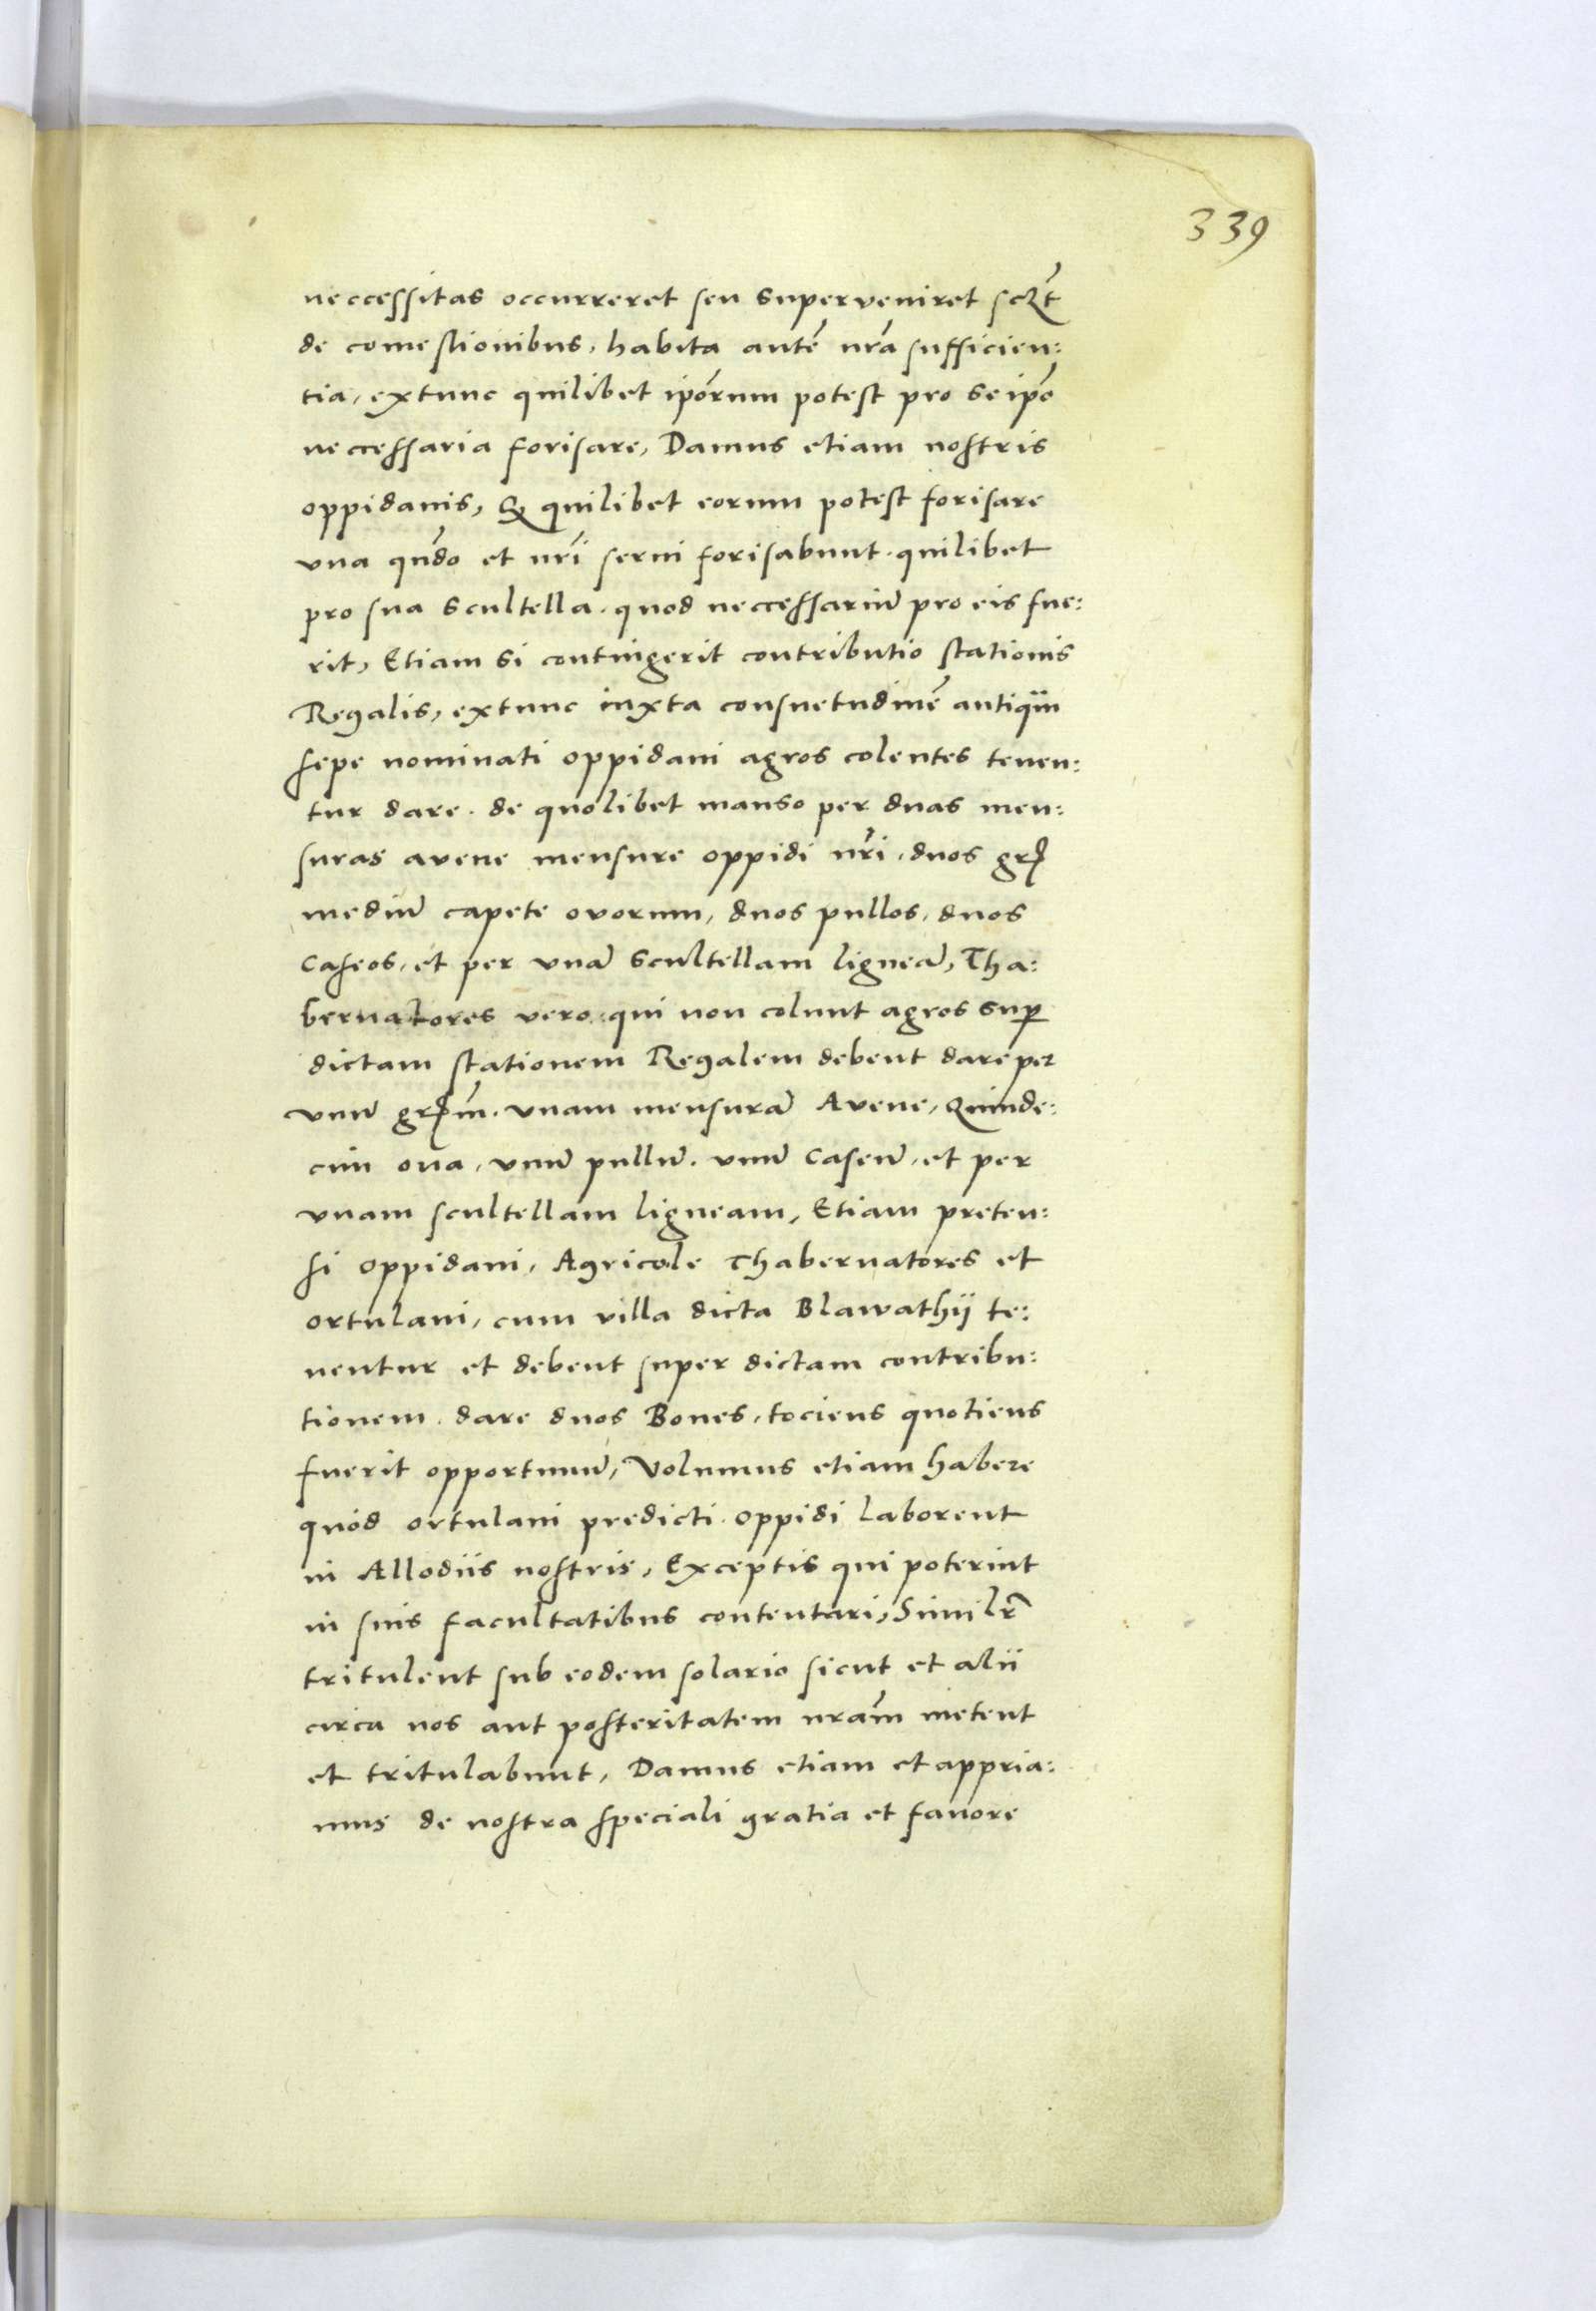 339
neccessitas occurreret seu superveniret scz̃t
de comestionibus, habita autẽ nrã sufficien:
tia, extunc quilibet ipõrum potest pro se ipõ
neccessaria forisare, Damus etiam nostris
oppidanis, Qꝫ quilibet eorum potest forisare
vna qnd̃o et nrĩ serui forisabunt. quilibet
pro sua scultella. quod neccessariũ pro eis fue:
rit, Etiam si contingerit contributio stationis
Regalis, extunc iuxta consuetudinẽ antiqũ
sepe nominati oppidani agros colentes tenen:
tur dare. de quolibet manso per duas men:
suras avene mensure oppidi nrĩ, duos grꝭ
mediũ capete ovorum, duos pullos, duos
caseos, et per vnã scultellam ligneã, Tha:
bernatores vero qui non colunt agros sup̱
dictam stationem Regalem debent dare per
vnũ grꝭm̃. vnam mensurã Avene, Quinde:
cim oua, vnũ pullũ. vnũ Caseũ, et per
vnam scultellam ligneam, Etiam preten:
si oppidani, Agricole Thabernatores et
ortulani, cum villa dicta Blawathij te:
nentur et debent super dictam contribu:
tionem. dare duos Boues, tociens quotiens
fuerit opportunũ, Volumus etiam habere
quod ortulani predicti oppidi laborent
in Allodiis nostris, Exceptis qui poterint
in suis facultatibus contentari, Similr̃
tritulent sub eodem solario sicut et alii
circa nos aut posteritatem nrãm metent
et tritulabunt, Damus etiam et appria:
mus de nostra speciali gratia et fauore